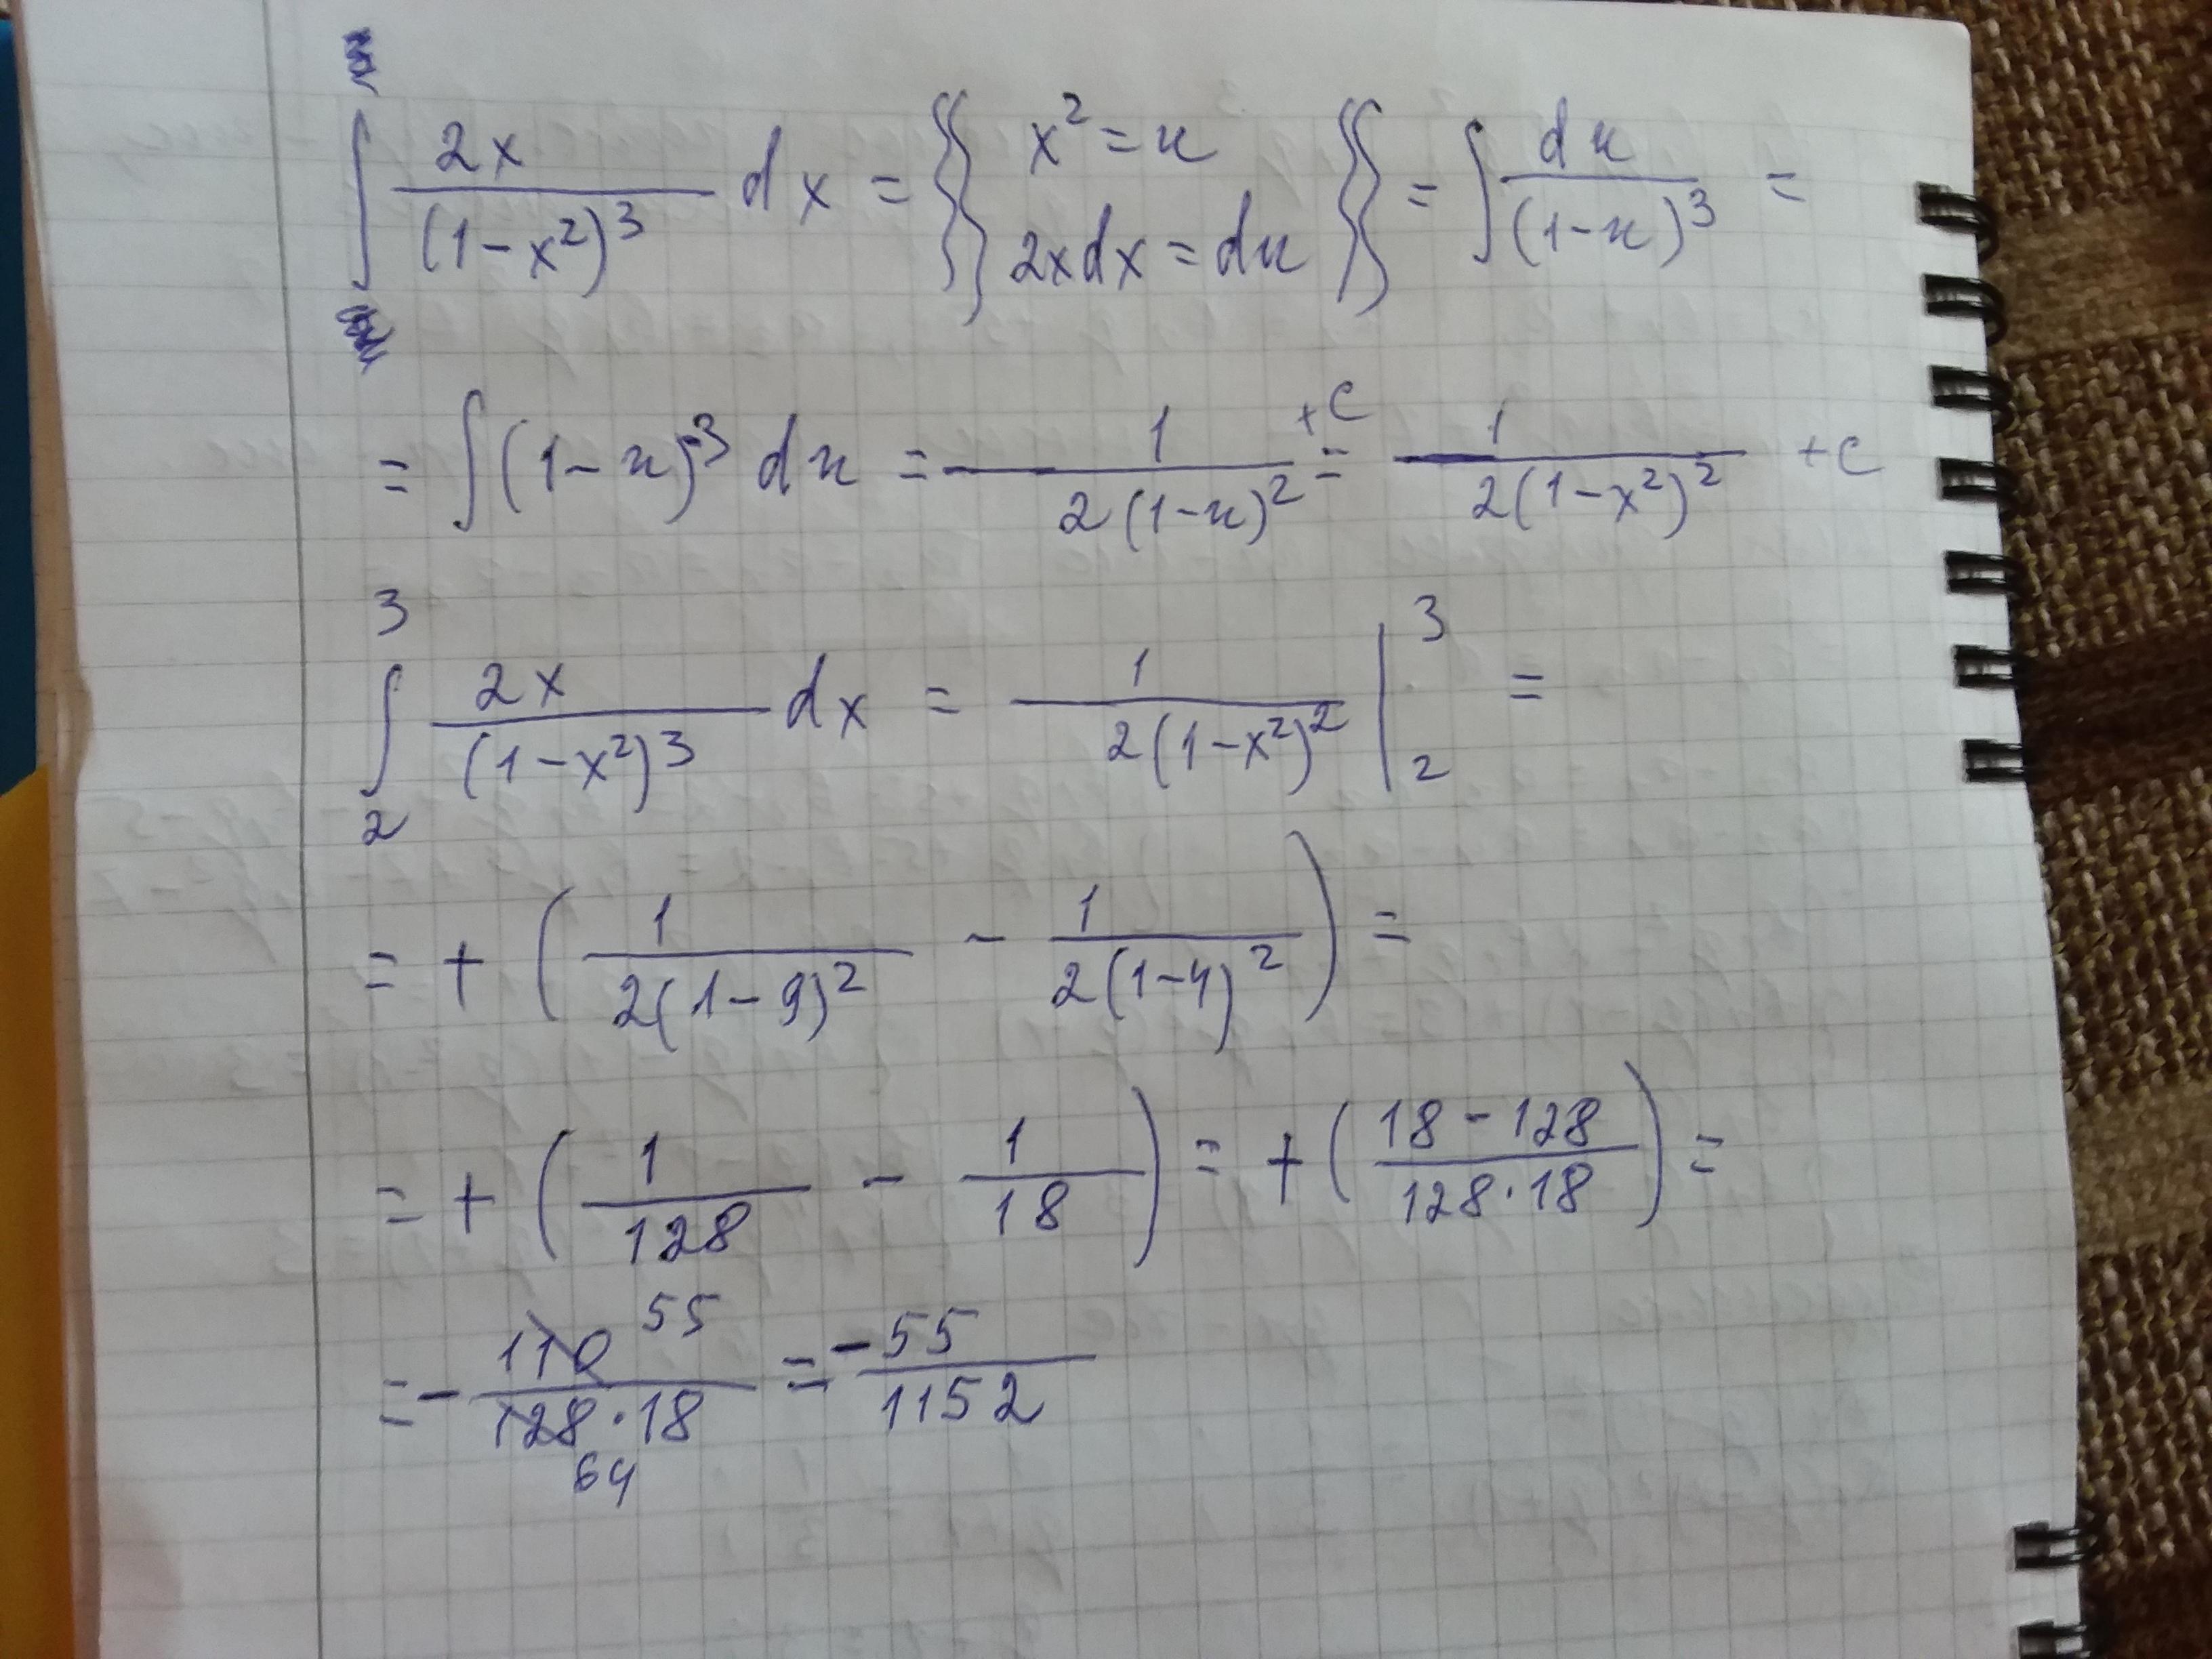 ∫ 2x/(1-x²)³ dx = {{ x² = u ; 2xdx = du }} = ∫ du/(1-u)³ =
= ∫ (1-u)⁻³ du = 1/(2(1-u)²) + C = 1/(2(1-x²)²) + C
∫₂³ 2x/(1-x²)³ dx = 1/(2(1-x²)²) |₂³ =
= + (1/(2(1-9)²) - 1/(2(1-4)²)) =
= + (1/128 - 1/18) = + ((18-128)/(128·18)) =
= - 110 55/(128·18) 64 = -55/1152